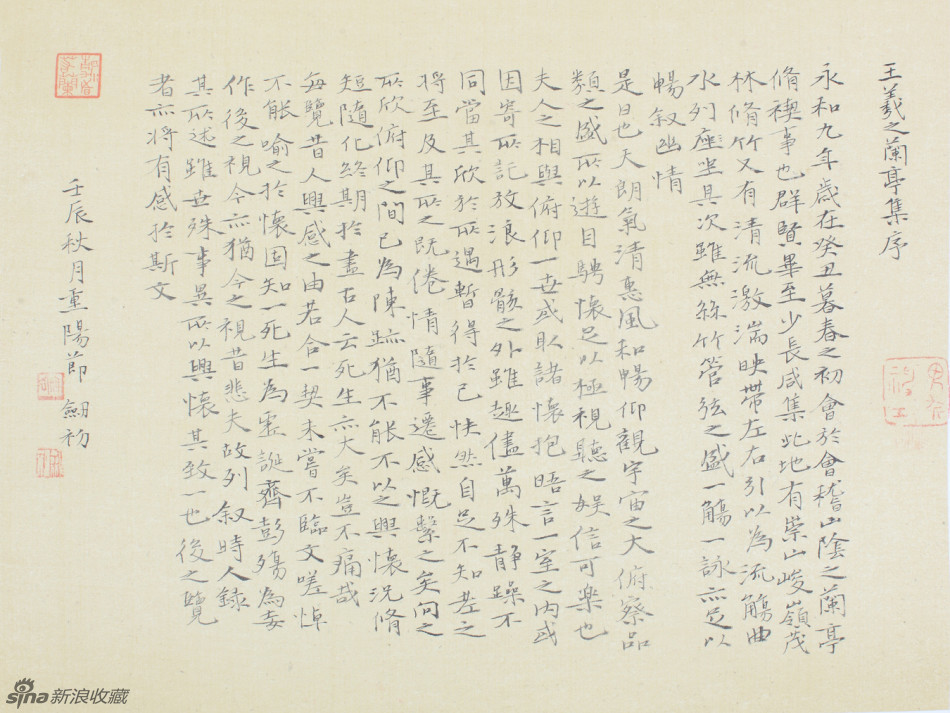 王羲之蘭亭集序
永和九年歲在癸丑暮春之初會於會稽山陰之蘭亭
脩禊事也群賢畢至少長咸集此地有崇山峻嶺茂
林脩竹又有清流激湍映帶左右引以為流觴曲
水列座坐其次雖無絲竹管弦之盛一觴一詠亦足以
暢敘幽情
是日也天朗氣清惠風和暢仰觀宇宙之大俯察品
類之盛所以遊目騁懷足以極視聽之娛信可樂也
夫人之相與俯仰一世或取諸懷抱晤言一室之內或
因寄所記放浪形骸之外雖趣儘萬殊靜躁不
同當其欣於所遇暫得於己快然自足不知老之
將至及其所之既倦情隨事遷感慨繫之矣向之
所欣俯仰之間已為陳跡猶不能不以之興懷況脩
短隨化終期於盡古人云死生亦大矣豈不痛哉
每覽昔人興感之由若合一契未嘗不臨文嗟悼
不能喻之於懷固知一死生為虛誕齊彭殤為妄
作後之視今亦猶今之視昔悲夫故列敘時人錄
其所述雖世殊事異所以興懷其致一也後之覽
者亦將有感於斯文
壬辰秋月重陽節 劒初
sina新浪收藏